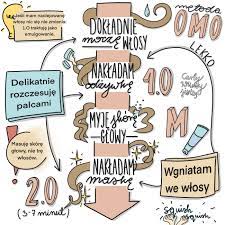 Jeśli mam naolejowane
włosy nic się nie zmienia.
1.O traktuję jako
emulgowanie.
DOKŁADNIE
moczę WŁOSY
metoda
OMO
LEKKO
NAKŁADAM
odżywkę
1.O
Delikatnie
rozczesuję
palcami
MYJĘ skórę
GŁOWY
M
Masuję skórę
głowy, nie trę
włosów.
NAKŁADAM
maskę
Wgniatam
we włosy
2.O
(3-7 minut)
squish
squish